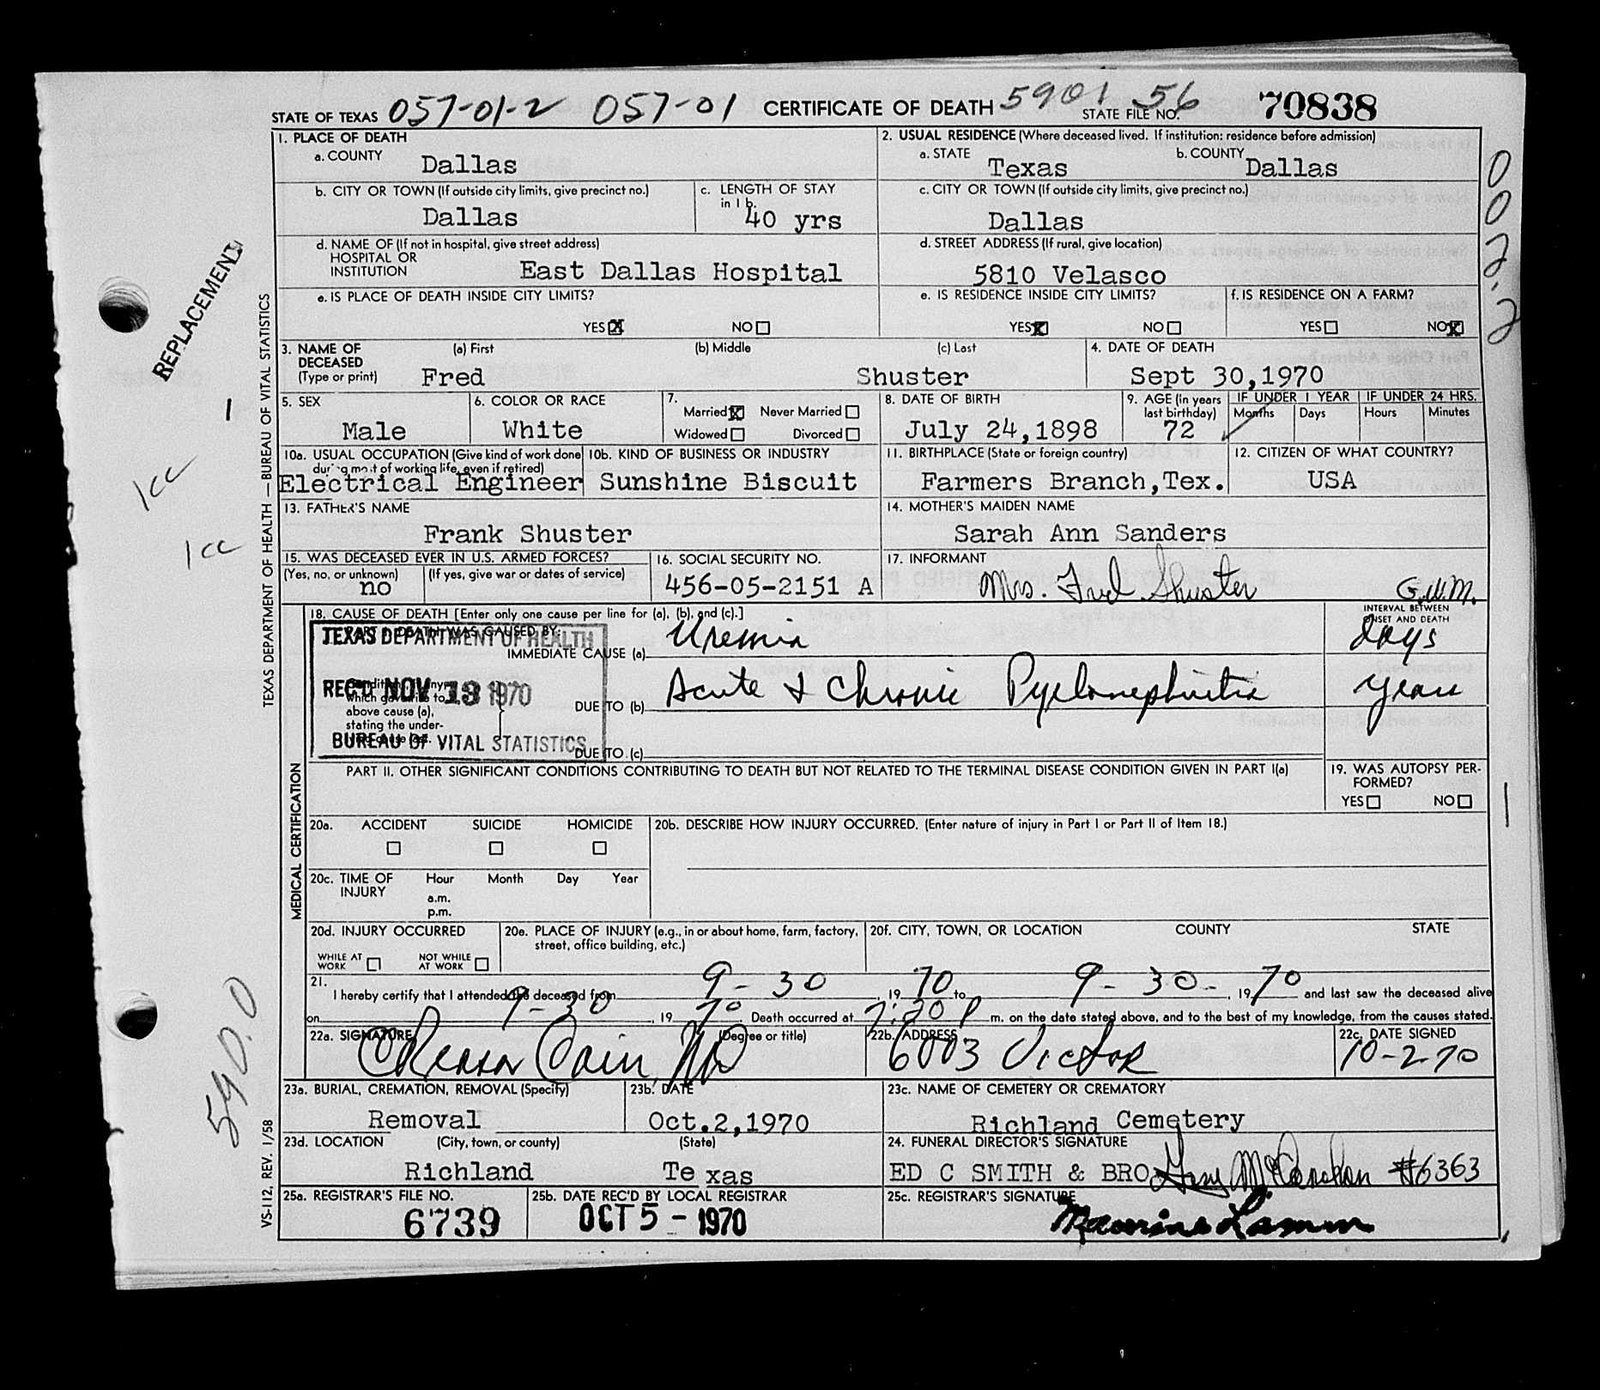 STATE OF TEXAS 057-01-2 057-01 CERTIFICATE OF DEATH 5901 56 STATE FILE NO. 70838
1. PLACE OF DEATH
a. COUNTY Dallas
2. USUAL RESIDENCE (Where deceased lived. If institution: residence before admission)
a. STATE Texas b. COUNTY Dallas
b. CITY OR TOWN (If outside city limits, give precinct no.) Dallas
c. LENGTH OF STAY in 1 b. 40 yrs
c. CITY OR TOWN (If outside city limits, give precinct no.) Dallas
d. NAME OF (If not in hospital, give street address)
HOSPITAL OR
INSTITUTION East Dallas Hospital
d. STREET ADDRESS (If rural, give location)
5810 Velasco
e. IS PLACE OF DEATH INSIDE CITY LIMITS?
YES X NO
e. IS RESIDENCE INSIDE CITY LIMITS?
YES X NO
f. IS RESIDENCE ON A FARM?
YES NO X
002.2
REPLACEMENT
1
1cc
1cc
590.0
TEXAS DEPARTMENT OF HEALTH — BUREAU OF VITAL STATISTICS
3. NAME OF DECEASED (Type or print)
(a) First (b) Middle (c) Last
Fred Shuster
4. DATE OF DEATH
Sept 30,1970
5. SEX
Male
6. COLOR OR RACE
White
7. Married X Never Married
Widowed Divorced
8. DATE OF BIRTH
July 24,1898
9. AGE (In years last birthday)
72
IF UNDER 1 YEAR IF UNDER 24 HRS.
Months Days Hours Minutes
10a. USUAL OCCUPATION (Give kind of work done
during most of working life, even if retired)
Electrical Engineer
10b. KIND OF BUSINESS OR INDUSTRY
Sunshine Biscuit
11. BIRTHPLACE (State or foreign country)
Farmers Branch,Tex.
12. CITIZEN OF WHAT COUNTRY?
USA
13. FATHER'S NAME
Frank Shuster
14. MOTHER'S MAIDEN NAME
Sarah Ann Sanders
15. WAS DECEASED EVER IN U.S. ARMED FORCES?
(Yes, no, or unknown) (If yes, give war or dates of service)
no
16. SOCIAL SECURITY NO.
456-05-2151 A
17. INFORMANT
Mrs. Fred Shuster G.W.M.
MEDICAL CERTIFICATION
18. CAUSE OF DEATH [Enter only one cause per line for (a), (b), and (c).]
INTERVAL BETWEEN
ONSET AND DEATH
PART I. DEATH WAS CAUSED BY:
IMMEDIATE CAUSE (a) Uremia days
Conditions, if any,
which gave rise to
above cause (a),
stating the under-
lying cause last.
DUE TO (b) Acute & Chronic Pyelonephritis years
DUE TO (c)
TEXAS DEPARTMENT OF HEALTH
REC'D NOV 13 1970
BUREAU OF VITAL STATISTICS
PART II. OTHER SIGNIFICANT CONDITIONS CONTRIBUTING TO DEATH BUT NOT RELATED TO THE TERMINAL DISEASE CONDITION GIVEN IN PART I(a)
19. WAS AUTOPSY PER-
FORMED?
YES NO
20a. ACCIDENT SUICIDE HOMICIDE
20b. DESCRIBE HOW INJURY OCCURRED. (Enter nature of injury in Part I or Part II of Item 18.)
20c. TIME OF INJURY Hour Month Day Year
a.m.
p.m.
20d. INJURY OCCURRED
WHILE AT WORK NOT WHILE AT WORK
20e. PLACE OF INJURY (e.g., in or about home, farm, factory,
street, office building, etc.)
20f. CITY, TOWN, OR LOCATION COUNTY STATE
21.
I hereby certify that I attended the deceased from 9-30, 1970 to 9-30-, 1970 and last saw the deceased alive
on 9-30, 1970. Death occurred at 7:20 P m. on the date stated above, and to the best of my knowledge, from the causes stated.
22a. SIGNATURE (Degree or title)
Cain, MD
22b. ADDRESS
6003 Victor
22c. DATE SIGNED
10-2-70
23a. BURIAL, CREMATION, REMOVAL (Specify)
Removal
23b. DATE
Oct.2,1970
23c. NAME OF CEMETERY OR CREMATORY
Richland Cemetery
23d. LOCATION (City, town, or county) (State)
Richland Te xas
24. FUNERAL DIRECTOR'S SIGNATURE
ED C SMITH & BRO #6363
25a. REGISTRAR'S FILE NO.
6739
25b. DATE REC'D BY LOCAL REGISTRAR
OCT 5 - 1970
25c. REGISTRAR'S SIGNATURE
VS-112, REV. 1/58